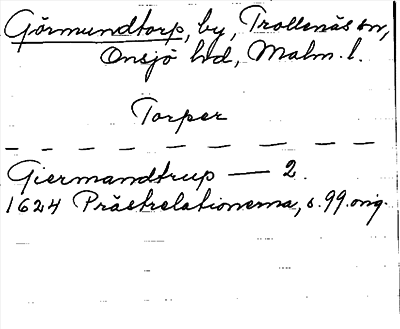 Görmundtorp, by, Trollenäs sn,
Onsjö hd, Malm. l.
Torper
Giermandtrup — 2.
1624 Prästrelationerna, s. 99. orig.